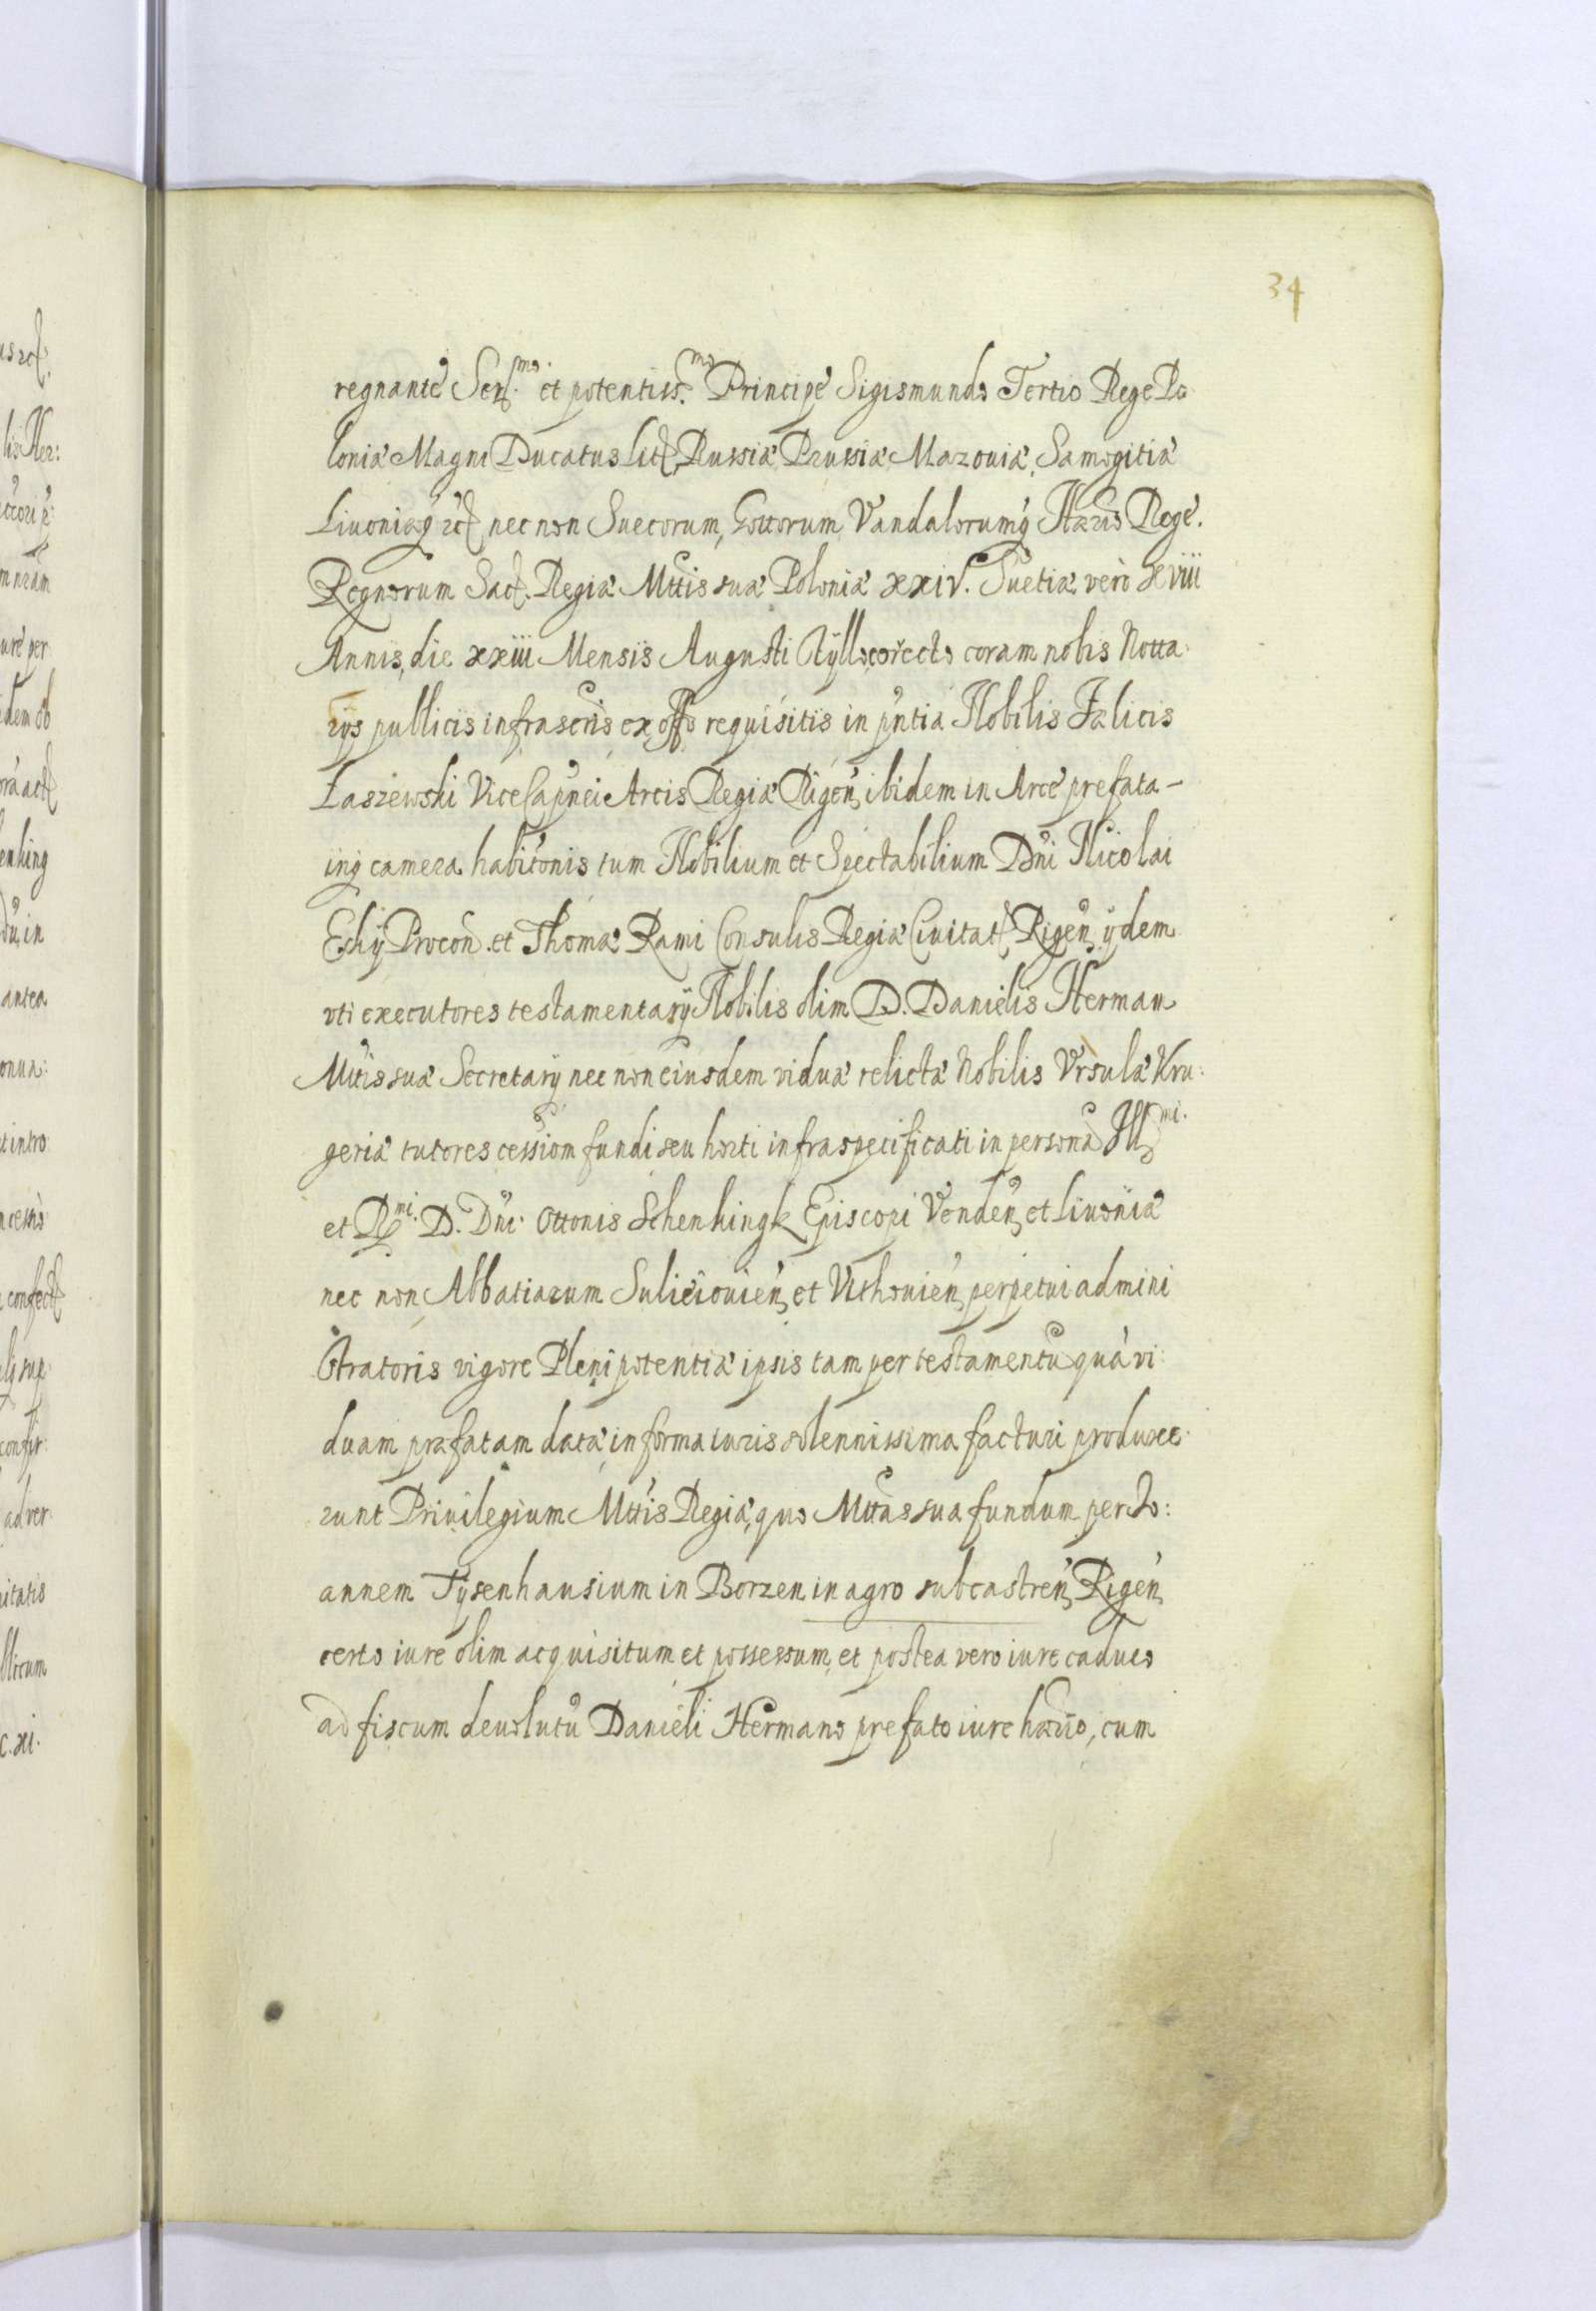 34
regnante Ser.mo et potentiss.mo Principe Sigismundo Tertio Rege Po
loniæ Magni Ducatus Lit. Russiæ Prussiæ Mazouiæ, Samogitiæ
Liuoniæq etc nec non Suecorum, Gottorum Vandalorumq Hærio Rege.
Regnorum Sac. Regiæ Mttis suæ Poloniæ xxiv. Suetiæ verò xviii
Annis, die xxiii Mensis Augusti styllo corecto coram nobis Notta
rijs publicis infrascris ex offo requisitis in pntia Nobilis Fælicis
Łaszewski Vice Capnei Arcis Regiæ Rigen, ibidem in Arce prefata -
inq camera habitonis tum Nobilium et Spectabilium Dni Nicolai
Ekij Procon. et Thomæ Rami Consulis Regiæ Ciuitat Rigen ijdem
vti executores testamentarij Nobilis olim D. Danielis Herman
Mttis suæ Secretarij nec non eiusdem viduæ relictæ Nobilis Vrsulæ Kru:
geriæ tutores cessiom fundi seu horti infraspecificati in persona Ill mi.
et R mi. D. Dni. Ottonis Schenkingk Episcopi Venden, et Liuoniæ
nec non Abbatiarum Sulieiouien, et Vithouien, perpetui admini
stratoris vigore Plenipotentiæ ipsis tam per testamentu quà vi:
duam præfatam datæ, in forma iuris solennissima facturi produxe
runt Priuilegium Mttis Regiæ, quo Mttas sua fundum per Jo:
annem Tysenhausium in Borzen in agro subcastren, Rigen,
certo iure olim acquisitum et possessum, et postea vero iure caduco
ad fiscum deuolutu Danieli Hermano prefato iure hærio, cum